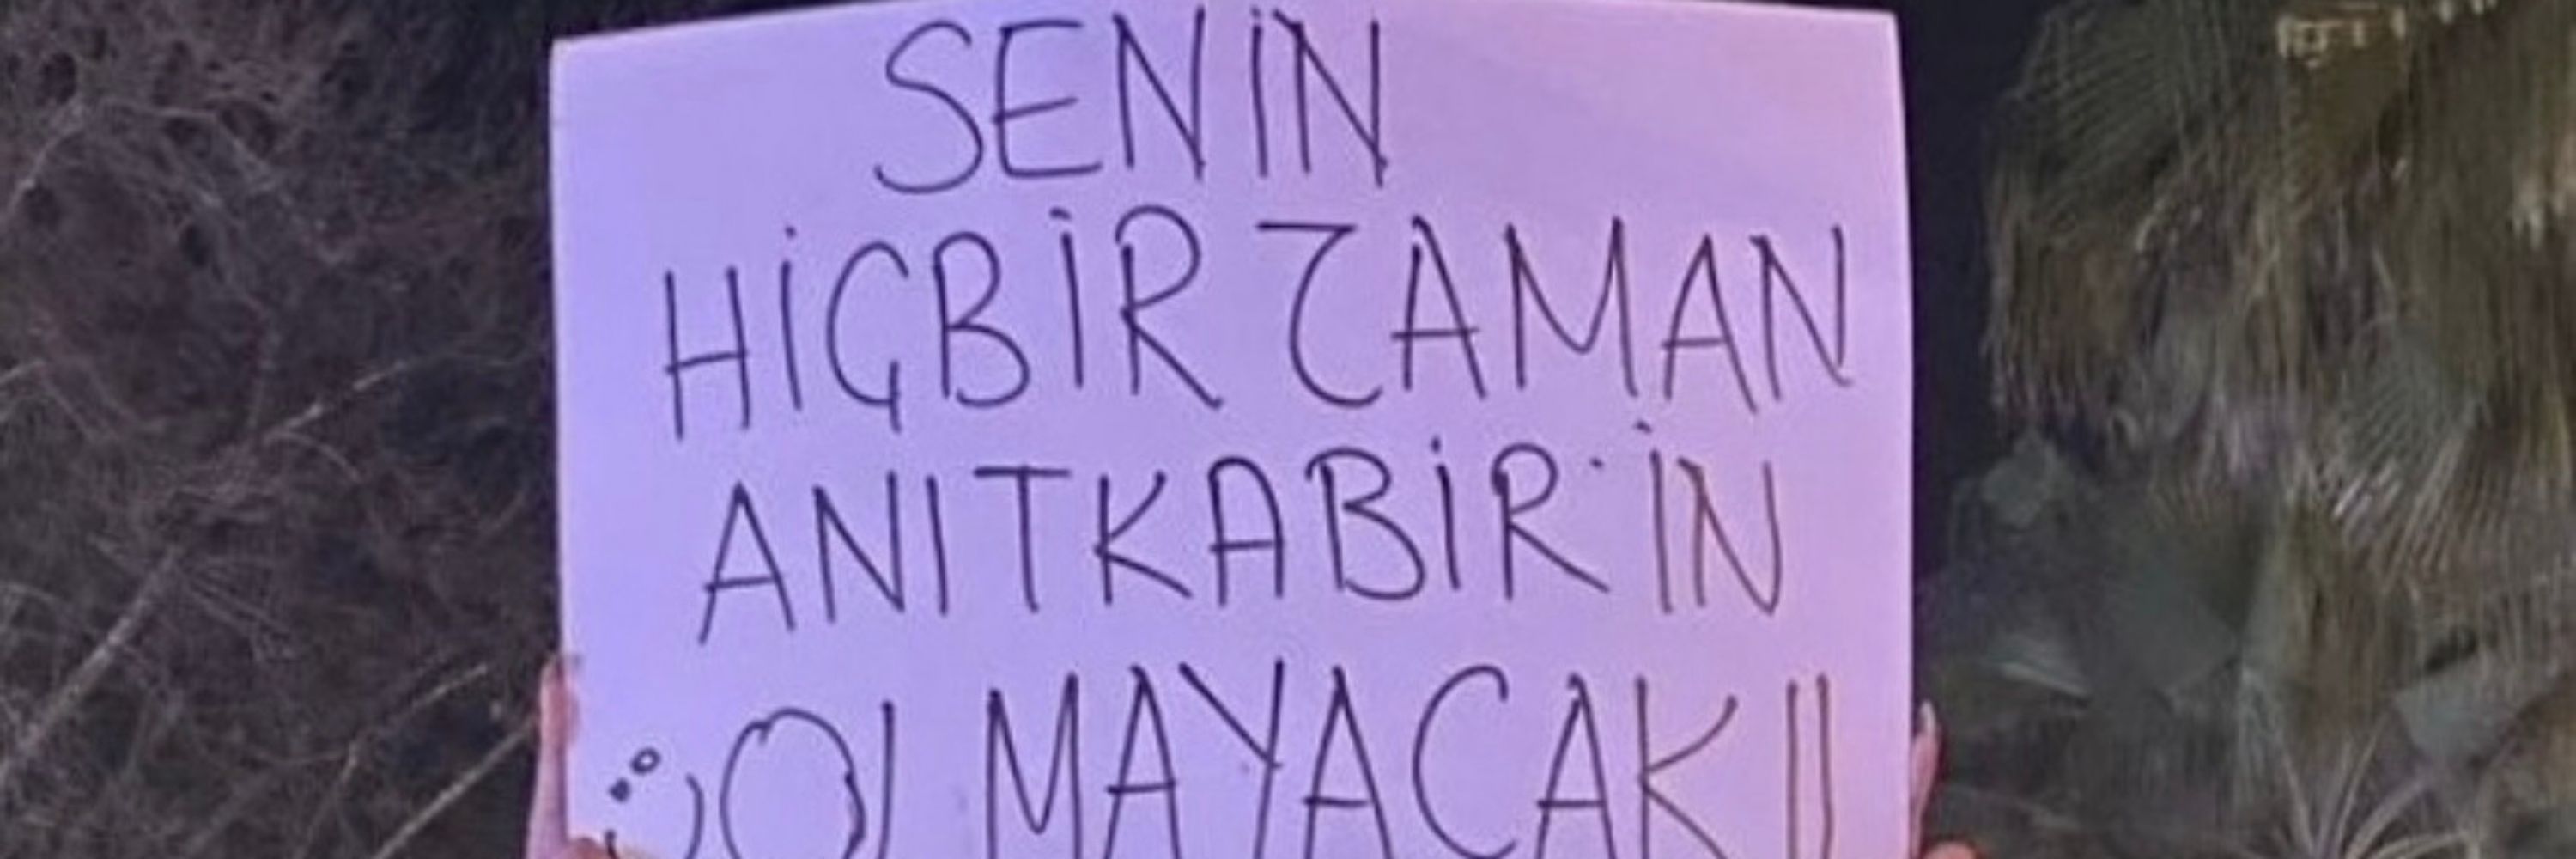 SENİN
HİÇBİR ZAMAN
ANITKABİR'İN
OLMAYACAK!!